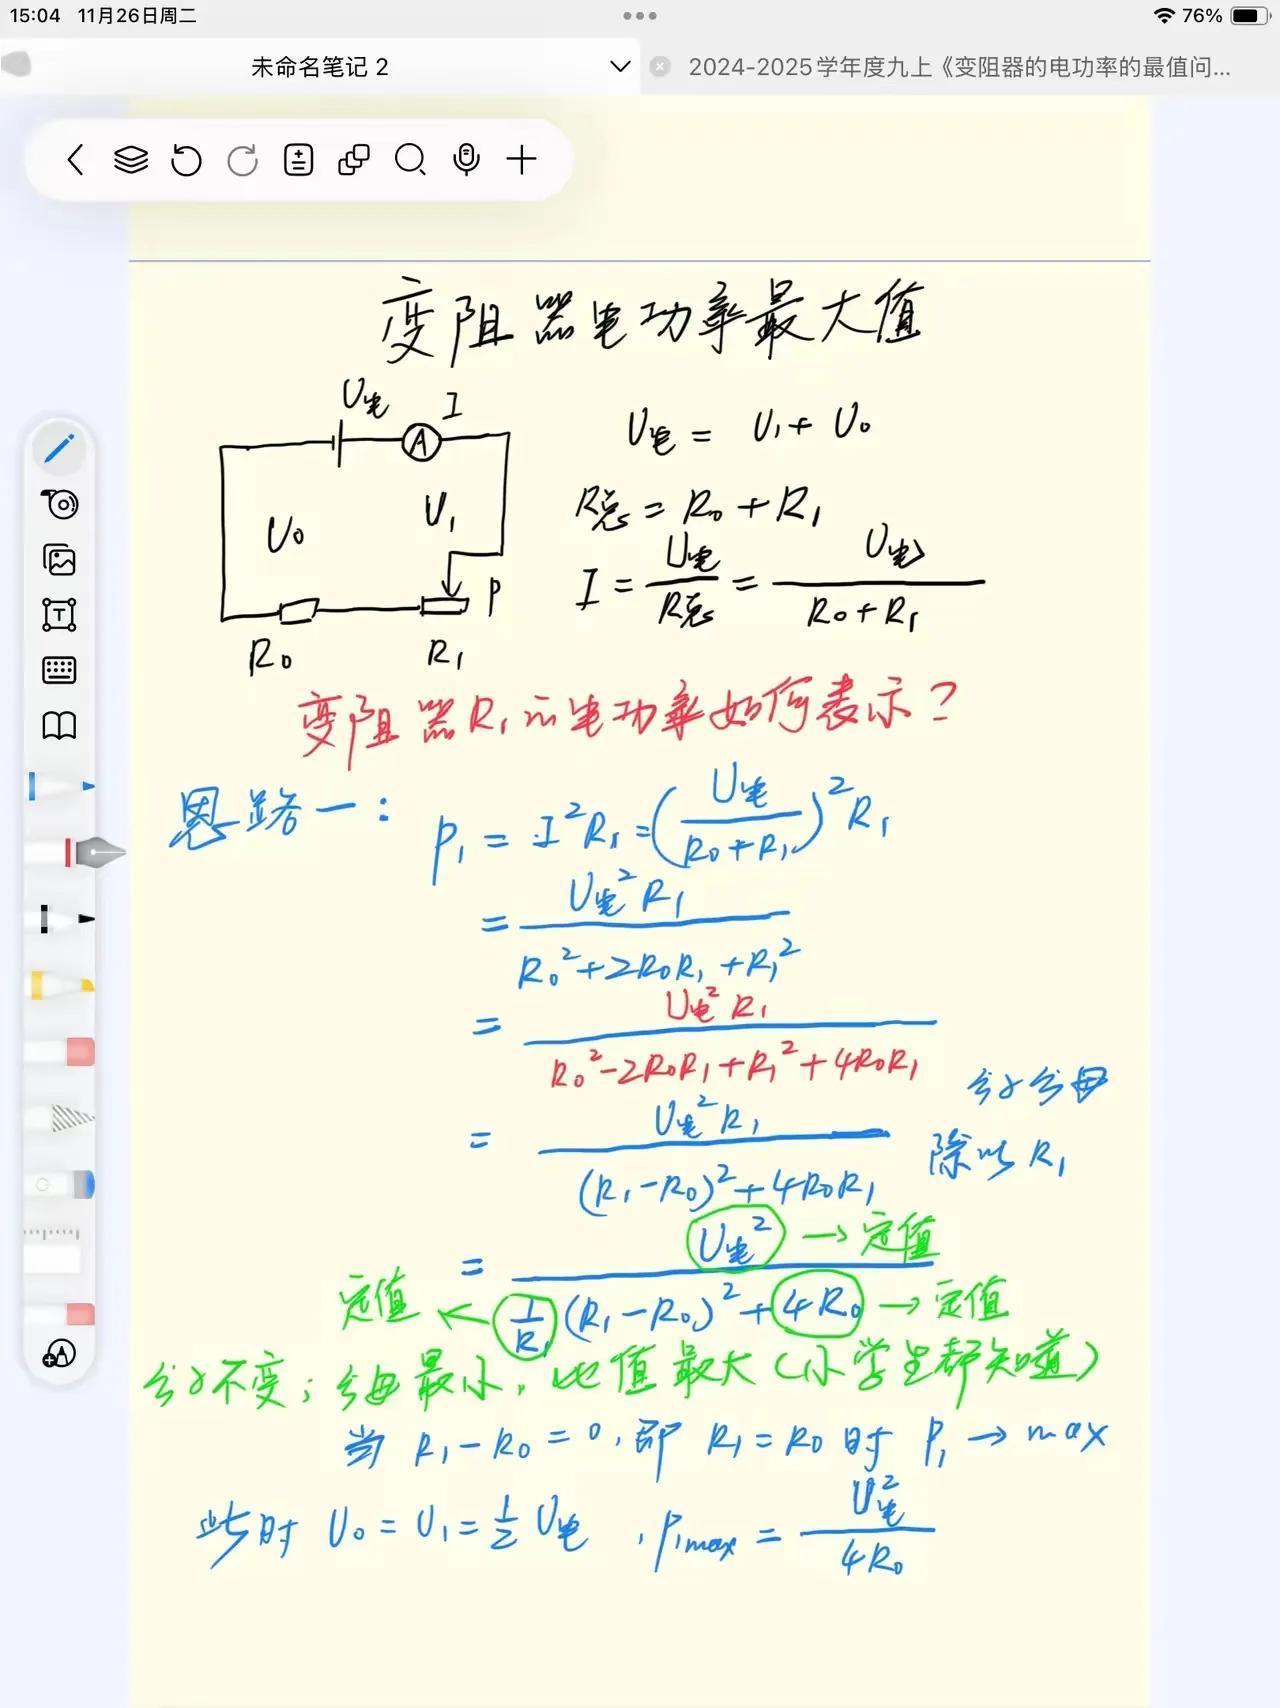 15:04 11月26日周二
76%
未命名笔记 2
2024-2025学年度九上《变阻器的电功率的最值问...
变阻器电功率最大值
U电 I
A
U电 = U₁ + U₀
U₀ U₁
R总 = R₀ + R₁
I = U电/R总 = U电/(R₀+R₁)
P
R₀ R₁
变阻器R₁的电功率如何表示?
思路一:
P₁ = I²R₁ = (U电/(R₀+R₁))²R₁
= U电²R₁/(R₀²+2R₀R₁+R₁²)
= U电²R₁/(R₀²-2R₀R₁+R₁²+4R₀R₁)
= U电²R₁/((R₁-R₀)²+4R₀R₁)
分子分母
除以R₁
= U电²/(1/R₁(R₁-R₀)²+4R₀)
→ 定值
定值 ←
→ 定值
分子不变;分母最小,比值最大(小学生都知道)
当 R₁-R₀=0,即 R₁=R₀ 时 P₁→max
此时 U₀=U₁=1/2 U电 ,P₁max = U电²/4R₀